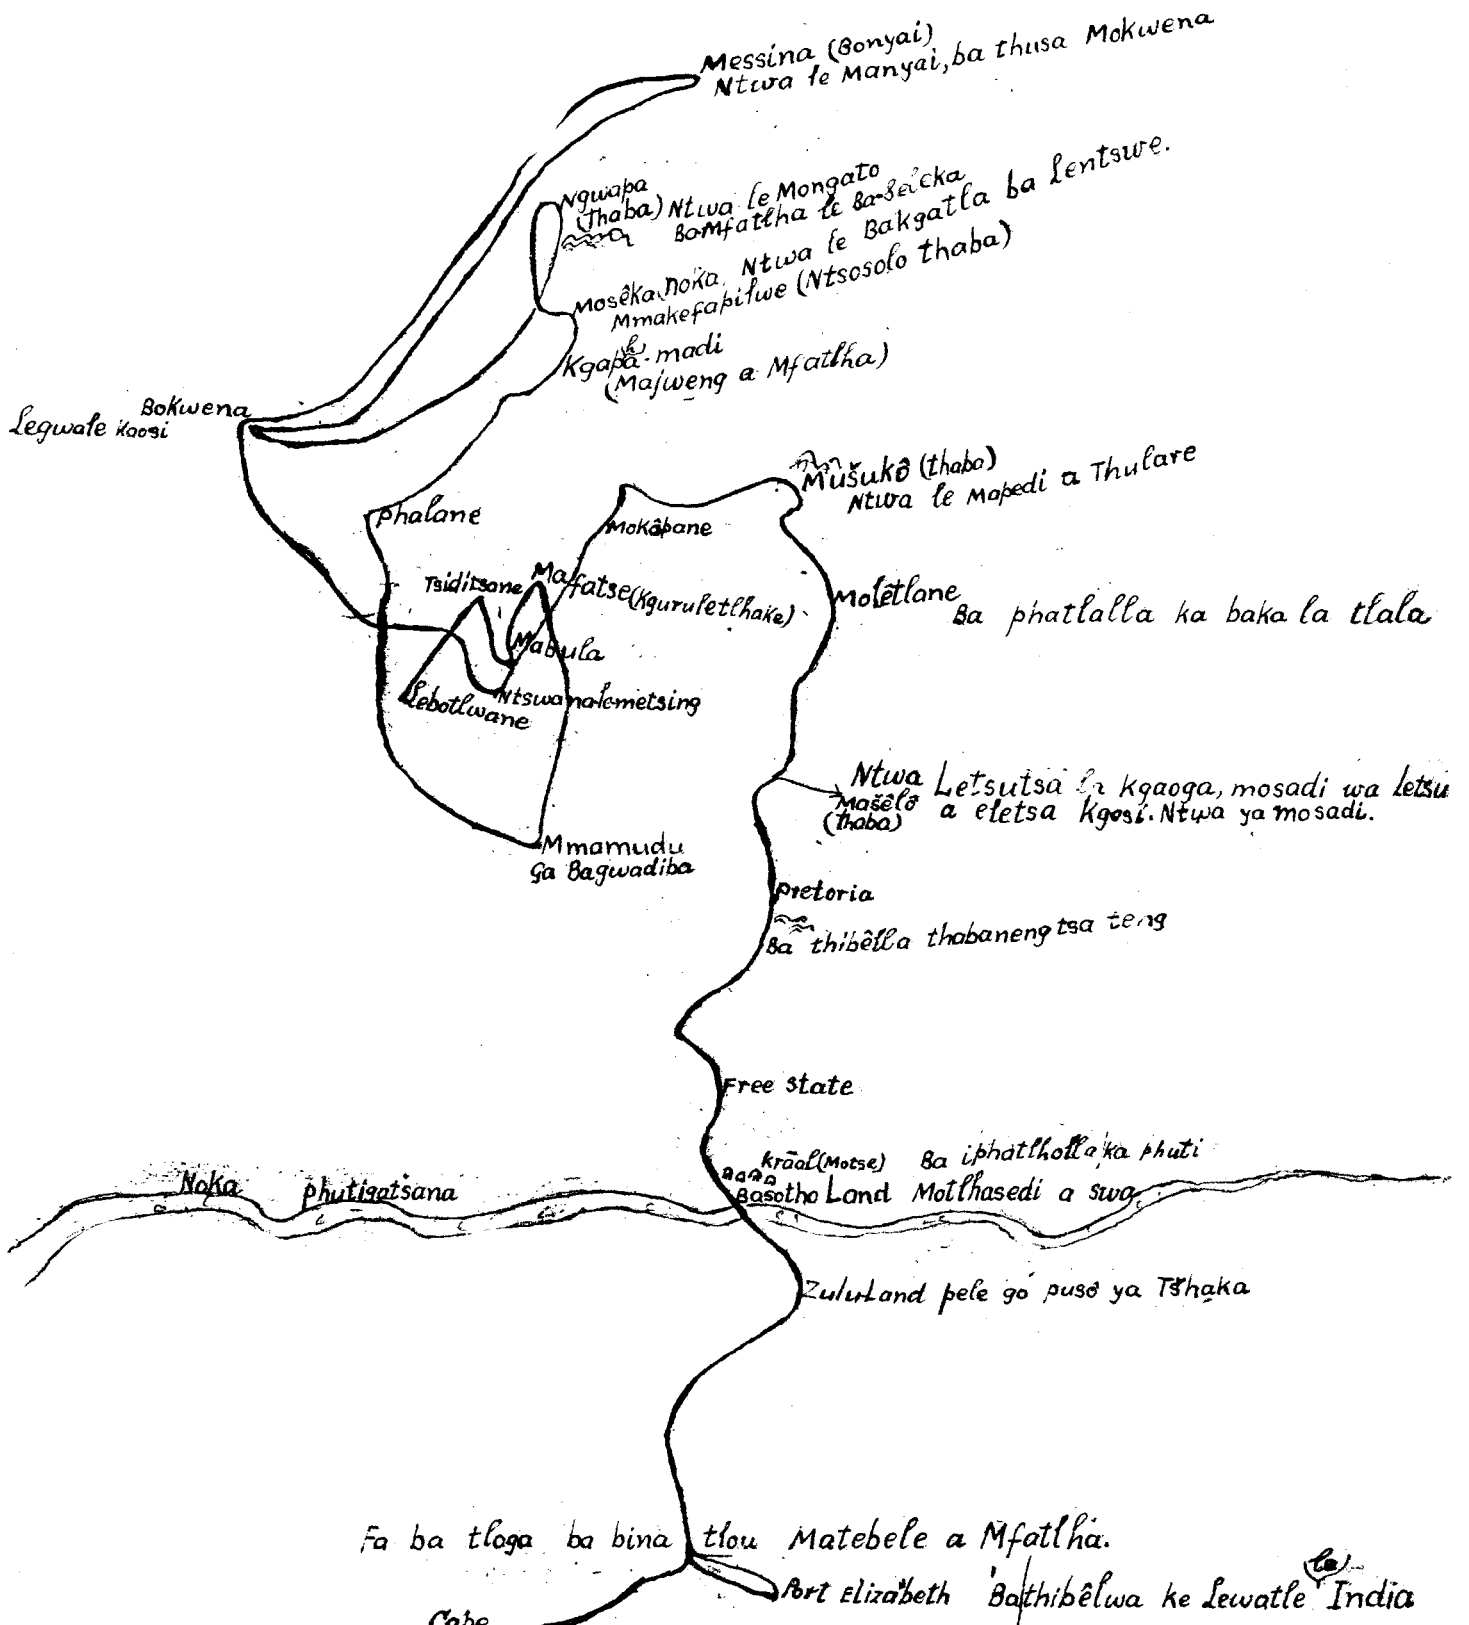 Messina (Bonyai)
Ntwa le Manyai, ba thusa Mokwena
Ngwapa
(Thaba) Ntwa le Mongato
BaMfatlha le
Mosêka noka. Ntwa le Bakgatla ba Lentswe.
Mmakefapilwe (Ntsosolo thaba)
Kgapha-madi
(Majweng a Mfatlha)
Bokwena
Legwale Kgosi
Mušukô (thaba)
Ntwa le Mapedi a Thulare
Phalane
Mokôpane
Tsiditsane
Mafatse (Kguruletlhake)
Molêtlane
Ba phatlalla ka baka la tlala
Mabula
Ntswanalemetsing
Lebotlwane
Ntwa Letsutsa la Kgaoga, mosadi wa Letsu
Mašêlô
(thaba) a eletsa Kgosi. Ntwa ya mosadi.
Mmamudu
ga Bagwadiba
Pretoria
Ba thibêlla thabaneng tsa teng
Free State
Krāal (Motse) Ba iphatlholla ka phuti
Noka Phutigatsana
Basotho Land Motlhasedi a swa
ZuluLand pele go pusô ya Tšhaka
Fa ba tloga ba bina tlou Matebele a Mfatlha.
Port Elizabeth Ba thibêlwa ke Lewatle la India
Cape